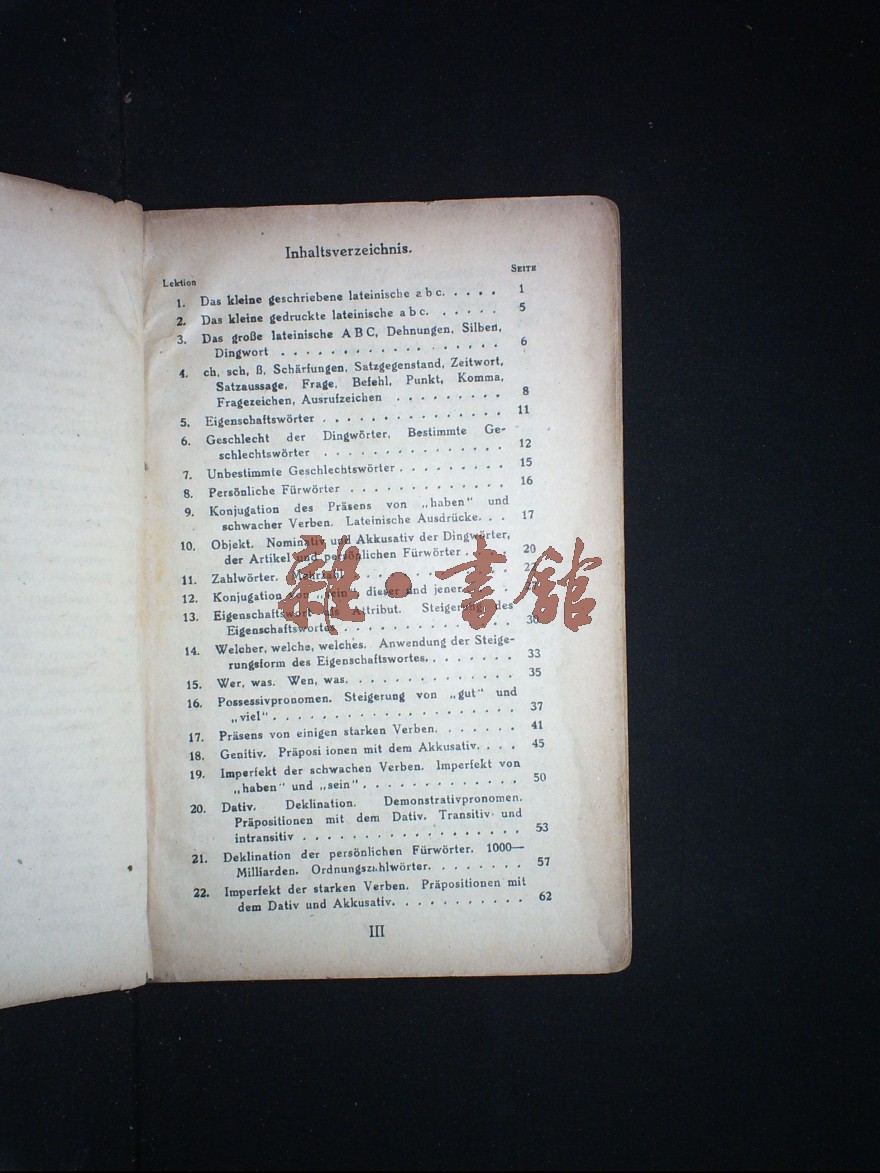 Inhaltsverzeichnis.
Lektion SEITE
1. Das kleine geschriebene lateinische a b c. . . . . 1
2. Das kleine gedruckte lateinische a b c. . . . . . 5
3. Das große lateinische A B C, Dehnungen, Silben,
Dingwort . . . . . . . . . . . . . . . . . 6
4. ch, sch, ß, Schärfungen, Satzgegenstand, Zeitwort,
Satzaussage, Frage, Befehl, Punkt, Komma,
Fragezeichen, Ausrufzeichen . . . . . . . . . 8
5. Eigenschaftswörter . . . . . . . . . . . . . . . 11
6. Geschlecht der Dingwörter, Bestimmte Ge-
schlechtswörter . . . . . . . . . . . . . . . 12
7. Unbestimmte Geschlechtswörter . . . . . . . . . 15
8. Persönliche Fürwörter . . . . . . . . . . . . . 16
9. Konjugation des Präsens von „haben“ und
schwacher Verben. Lateinische Ausdrücke. . . 17
10. Objekt. Nominativ und Akkusativ der Dingwörter,
der Artikel und persönlichen Fürwörter . . . . 20
11. Zahlwörter. Mehrzahl . . . . . . . . . . . . .
12. Konjugation von „sein“ dieser und jener . . . .
13. Eigenschaftswort als Attribut. Steigerung des
Eigenschaftswortes . . . . . . . . . . . . . . 30
14. Welcher, welche, welches. Anwendung der Steige-
rungsform des Eigenschaftswortes. . . . . . . . 33
15. Wer, was. Wen, was. . . . . . . . . . . . . . 35
16. Possessivpronomen. Steigerung von „gut“ und
„viel“ . . . . . . . . . . . . . . . . . . . 37
17. Präsens von einigen starken Verben. . . . . . . . 41
18. Genitiv. Präposi ionen mit dem Akkusativ. . . . 45
19. Imperfekt der schwachen Verben. Imperfekt von
„haben“ und „sein“ . . . . . . . . . . . . . 50
20. Dativ. Deklination. Demonstrativpronomen.
Präpositionen mit dem Dativ. Transitiv und
intransitiv . . . . . . . . . . . . . . . . . . 53
21. Deklination der persönlichen Fürwörter. 1000—
Milliarden. Ordnungszahlwörter. . . . . . . . 57
22. Imperfekt der starken Verben. Präpositionen mit
dem Dativ und Akkusativ. . . . . . . . . . . 62
III
雜·書館